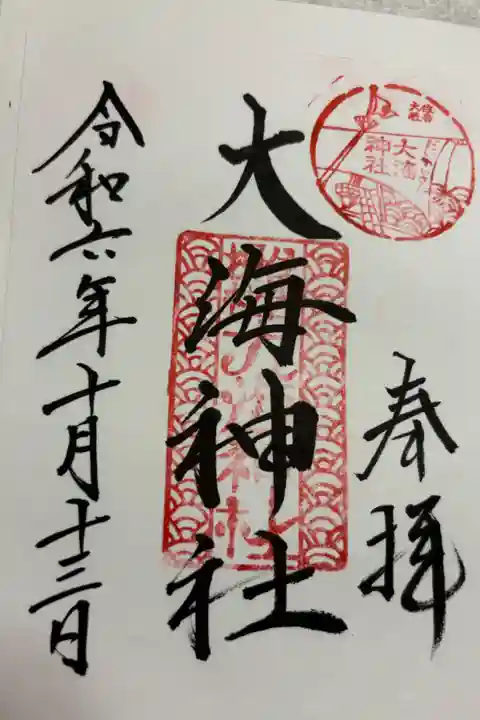 奉拝
住吉
大社
大海
神社
大海神社
令和六年十月十三日